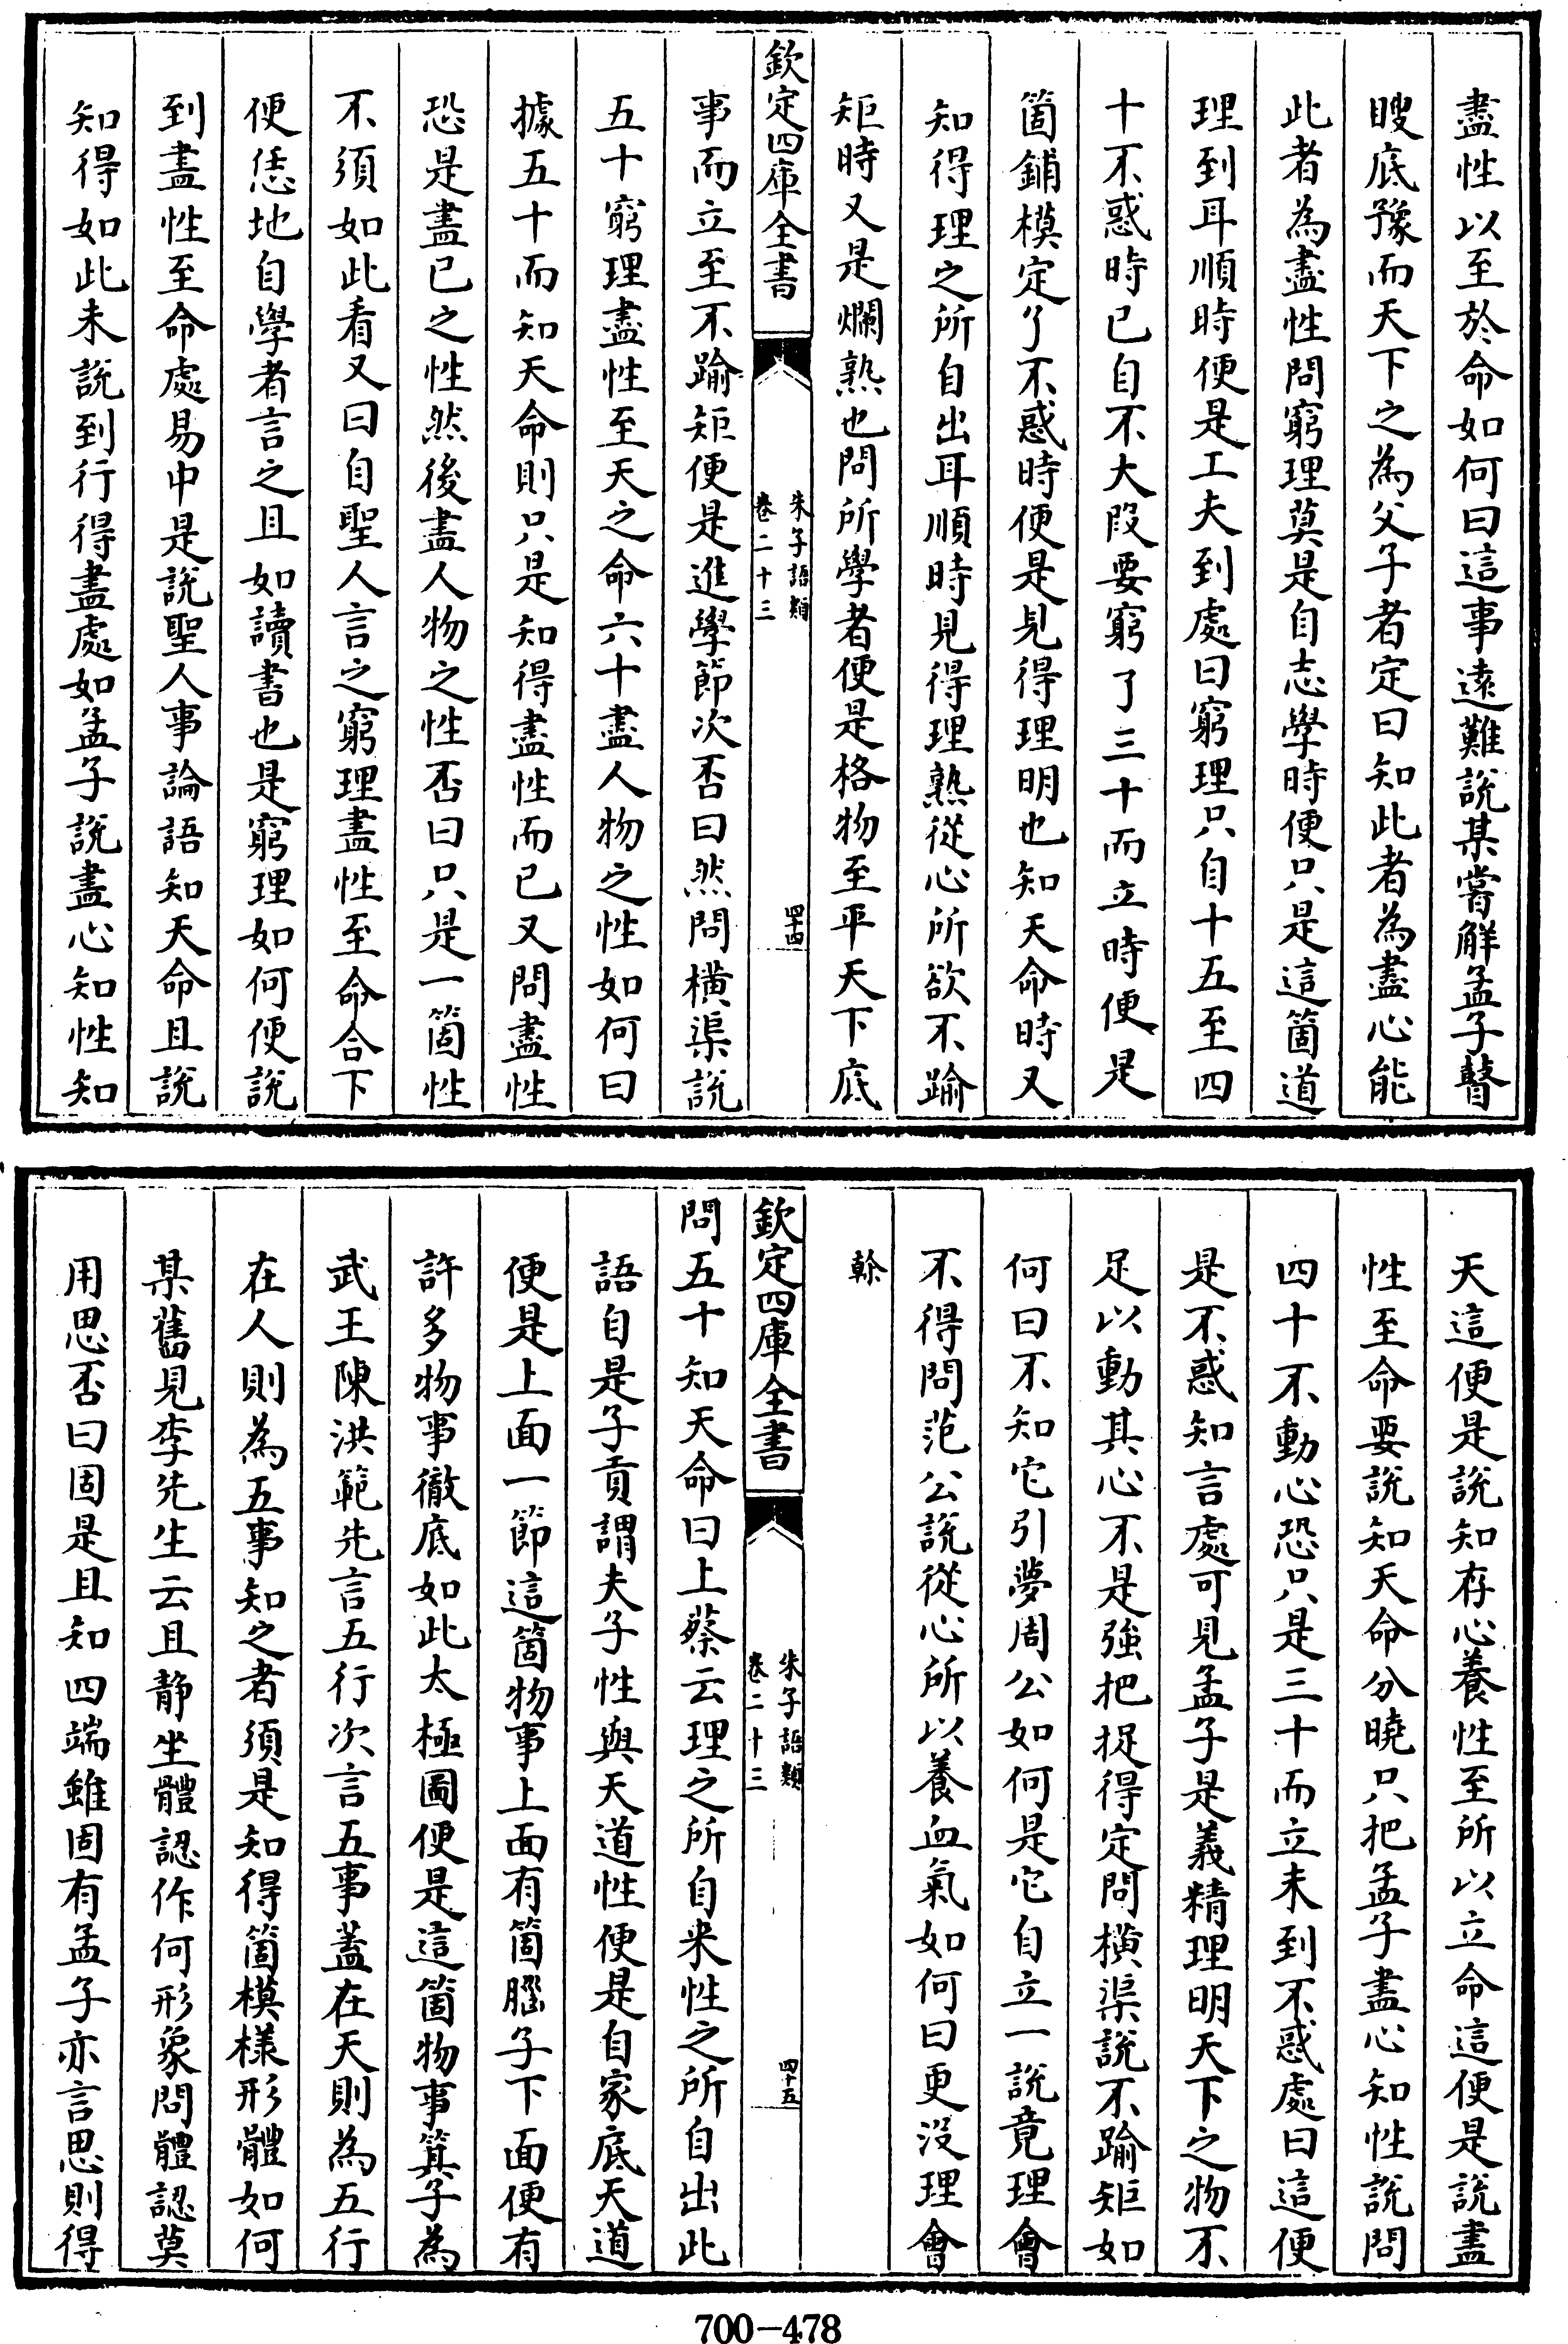 盡性以至於命如何曰這事遠難說某嘗解孟子瞽
瞍底豫而天下之為父子者定曰知此者為盡心能
此者為盡性問窮理莫是自志學時便只是這箇道
理到耳順時便是工夫到處曰窮理只自十五至四
十不惑時已自不大段要窮了三十而立時便是
箇鋪模定了不惑時便是見得理明也知天命時又
知得理之所自出耳順時見得理熟從心所欲不踰
矩時又是爛熟也問所學者便是格物至平天下底
欽定四庫全書
朱子語類
卷二十三
四十四
事而立至不踰矩便是進學節次否曰然問橫渠說
五十窮理盡性至天之命六十盡人物之性如何曰
據五十而知天命則只是知得盡性而已又問盡性
恐是盡已之性然後盡人物之性否曰只是一箇性
不須如此看又曰自聖人言之窮理盡性至命合下
便恁地自學者言之且如讀書也是窮理如何便說
到盡性至命處易中是說聖人事論語知天命且說
知得如此未說到行得盡處如孟子說盡心知性知
天這便是說知存心養性至所以立命這便是說盡
性至命要說知天命分曉只把孟子盡心知性說問
四十不動心恐只是三十而立未到不惑處曰這便
是不惑知言處可見孟子是義精理明天下之物不
足以動其心不是強把捉得定問橫渠說不踰矩如
何曰不知它引夢周公如何是它自立一說竟理會
不得問范公說從心所以養血氣如何曰更沒理會
榦
欽定四庫全書
朱子語類
卷二十三
四十五
問五十知天命曰上蔡云理之所自來性之所自出此
語自是子貢謂夫子性與天道性便是自家底天道
便是上面一節這箇物事上面有箇腦子下面便有
許多物事徹底如此太極圖便是這箇物事箕子為
武王陳洪範先言五行次言五事蓋在天則為五行
在人則為五事知之者須是知得箇模樣形體如何
某舊見李先生云且靜坐體認作何形象問體認莫
用思否曰固是且知四端雖固有孟子亦言思則得
700-478